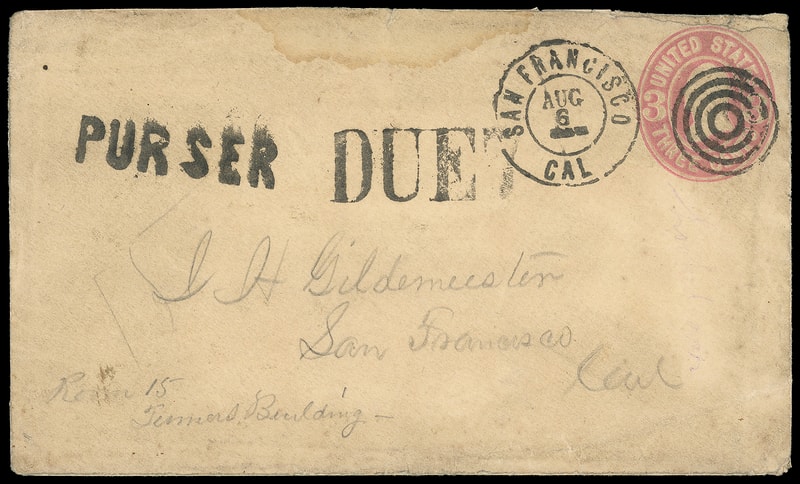 UNITED STATE
3
THREE
SAN FRANCISCO
AUG
6
CAL
PURSER
DUE 7
I H Gildemeester
San Francisco
Cal
Room 15
Building